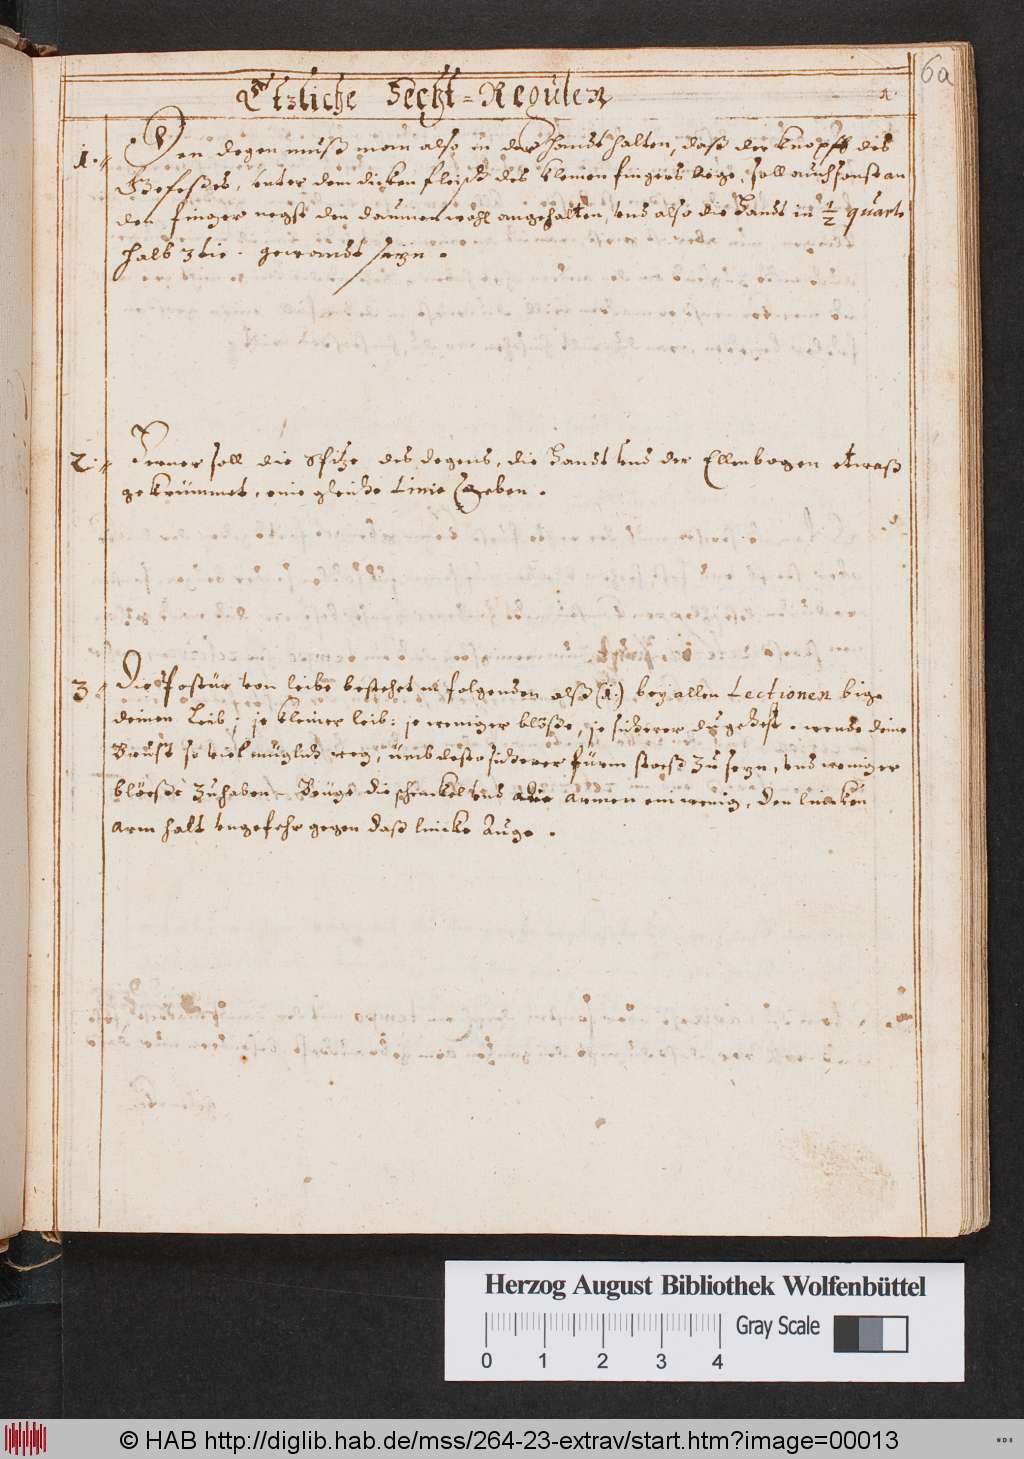 6a
Etzliche Fecht-Regulen
1.
1. Den degen muß man also in der handt halten, daß der knopff des
Gefeßes, unter dem dicken fleisch des kleinen fingers lige, soll auch sonst an
den finger negst den daumen wohl angehalten, und also die Handt in ½ quart
halb 3tie. gewandt seyn.
2. Ferner soll die Spitze des degens, die Handt und der Ellenbogen etwaß
gekrümmet, eine gleiche Linie geben.
3. Die Postür von leibe bestehet in folgenden alß (1.) bey allen Lectionen bige
deinen Leib; je kleiner leib: je weniger blöße, je sicherer du gehest. wende deine
Brust so viel müglich weg, umb desto sicherer fürm stoeß zu seyn, und weniger
bloeße zu haben. Beuge die schenckel und die armen ein wenig, den lincken
arm halt ungefehr gegen daß lincke Auge.
Herzog August Bibliothek Wolfenbüttel
Gray Scale
0 1 2 3 4
© HAB http://diglib.hab.de/mss/264-23-extrav/start.htm?image=00013